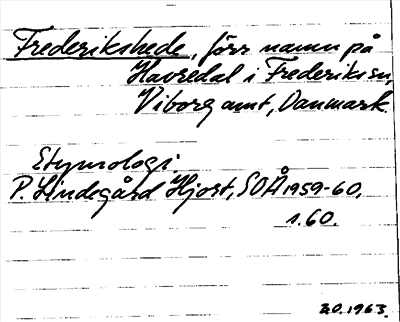 Frederikshede, förr namn på
Havredal i Frederiks sn,
Viborg amt, Danmark.
Etymologi.
P. Lindegård Hjort, SOÅ 1959-60,
s. 60.
20.1963.